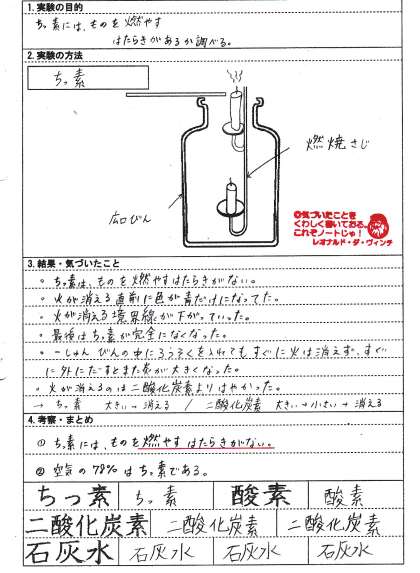 1.実験の目的
ちっ素には、ものを燃やす
はたらきがあるか調べる。
2.実験の方法
ちっ素
燃焼さじ
広口びん
◎気づいたことを
くわしく書いておる。
これぞノートじゃ！
レオナルド・ダ・ヴィンチ
3.結果・気づいたこと
・ちっ素は、ものを燃やすはたらきがない。
・火が消える直前に色が青だけになってた。
・火が消える境界線が下がっていった。
・最後はちっ素が完全になくなった。
・一しゅん びんの中にろうそくを入れてもすぐに火は消えず、すぐ
に外にだすとまた炎が大きくなった。
・火が消えるのは二酸化炭素よりはやかった。
→ ちっ素 大きい→消える / 二酸化炭素 大きい→小さい→消える
4.考察・まとめ
① ちっ素には、ものを燃やすはたらきがない。
② 空気の78%はちっ素である。
ちっ素 ちっ素 酸素 酸素
二酸化炭素 二酸化炭素 二酸化炭素
石灰水 石灰水 石灰水 石灰水